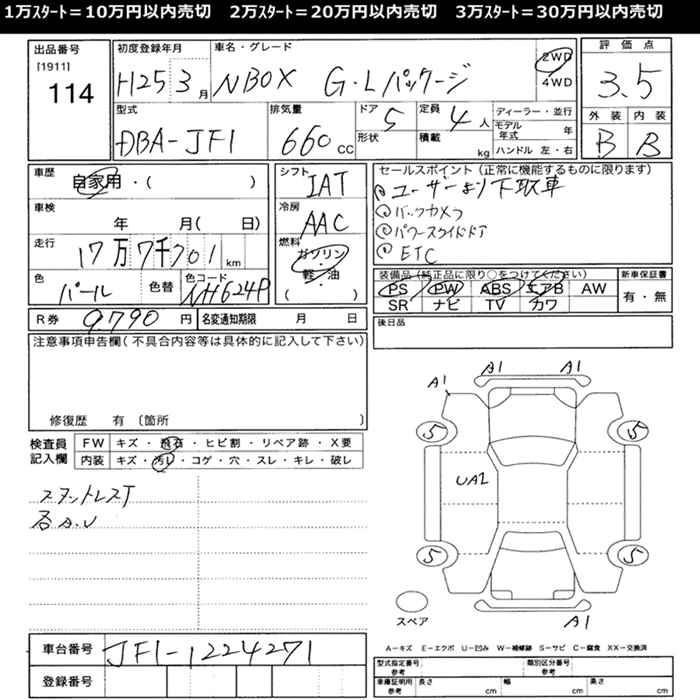 1万ｽﾀｰﾄ＝10万円以内売切　2万ｽﾀｰﾄ＝20万円以内売切　3万ｽﾀｰﾄ＝30万円以内売切
出品番号
[1911]
114
初度登録年月
H25 3月
車名・グレード
NBOX G・Lパッケージ
2WD
4WD
評価点
3.5
外装 内装
B B
型式
DBA-JF1
排気量
660 CC
ドア 5
形状
定員 4人
積載 kg
ディーラー・並行
モデル年式 年
ハンドル 左・右
車歴
自家用・( )
車検
年 月( 日)
走行
17万7千701 km
色
パール
色替
色コード
NH624P
シフト
IAT
冷房
AAC
燃料
ガソリン
軽・油
( )
セールスポイント（正常に機能するものに限ります）
①ユーザーより下取車
②バックカメラ
③パワースライドドア
④ETC
装備品（純正品に限り○をつけてください）
PS PW ABS エアB AW
SR ナビ TV カワ
新車保証書
有・無
R券 9790 円 名変通知期限 月 日
後日品
注意事項申告欄(不具合内容等は具体的に記入して下さい)
修復歴 有 〔箇所 〕
検査員記入欄
FW キズ・飛石・ヒビ割・リペア跡・X要
内装 キズ・汚レ・コゲ・穴・スレ・キレ・破レ
スタットレスT
各A.U
A1 A1 A1
5 5
UA2
5 5
スペア
A1
A－キズ E－エクボ U－凹み W－補修跡 S－サビ C－腐食 XX－交換済
車台番号 JF1-1224271
登録番号
型式指定番号 参考
類別区分番号 参考
車庫証明用 参考
長さ cm 幅 cm 高さ cm